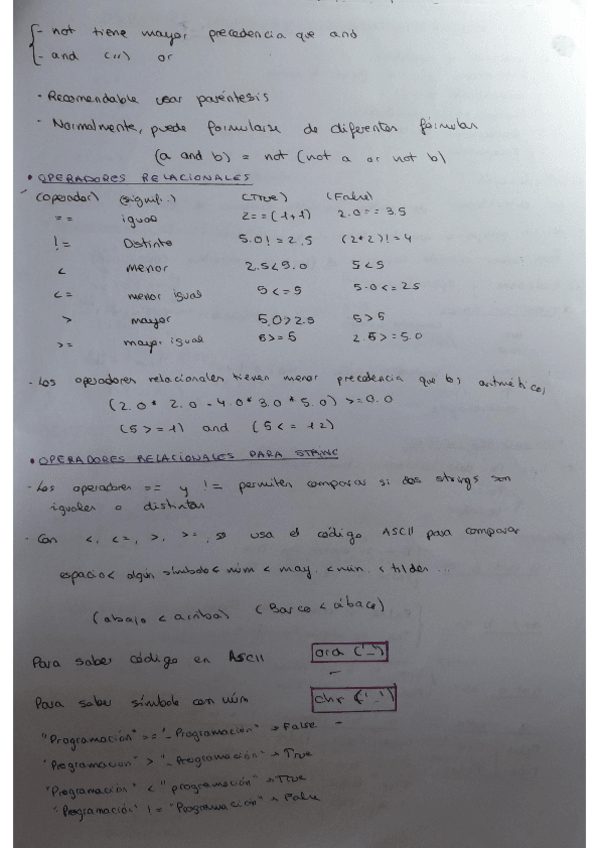 - not tiene mayor precedencia que and
- and (") or
· Recomendable usar paréntesis
· Normalmente, puede formularse de diferentes fórmulas
(a and b) = not (not a or not b)
• OPERADORES RELACIONALES
(operador) (signif..) (True) (False)
== igual 2==(1+1) 2.0==3.5
!= Distinto 5.0!=2.5 (2*2)!=4
< menor 2.5<5.0 5<5
<= menor igual 5<=5 5.0<=2.5
> mayor 5.0>2.5 5>5
>= mayor igual 5>=5 2.5>=5.0
- Los operadores relacionales tienen menor precedencia que los aritméticos
(2.0 * 2.0 - 4.0 * 3.0 * 5.0) >= 0.0
(5 >= 1) and (5 <= 12)
• OPERADORES RELACIONALES PARA STRING
- Los operadores == y != permiten comparar si dos strings son
iguales o distintas
- Con <, <=, >, >=, se usa el código ASCII para comparar
espacio < algún símbolo < núm < may. < min. < tildes ...
(abajo < arriba) (Barco < ábaco)
Para saber código en ASCII ord ('_')
Para saber símbolo con núm chr ('_')
"Programación" == "_Programación" → False
"Programación" > "_Programación" → True
"Programación" < "programación" → True
"Programación" != "Programación" → False